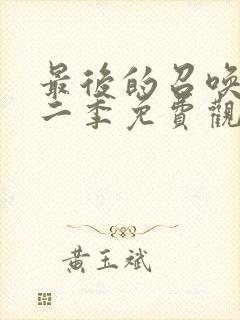 最後的召喚
二季免費觀
黃玉斌